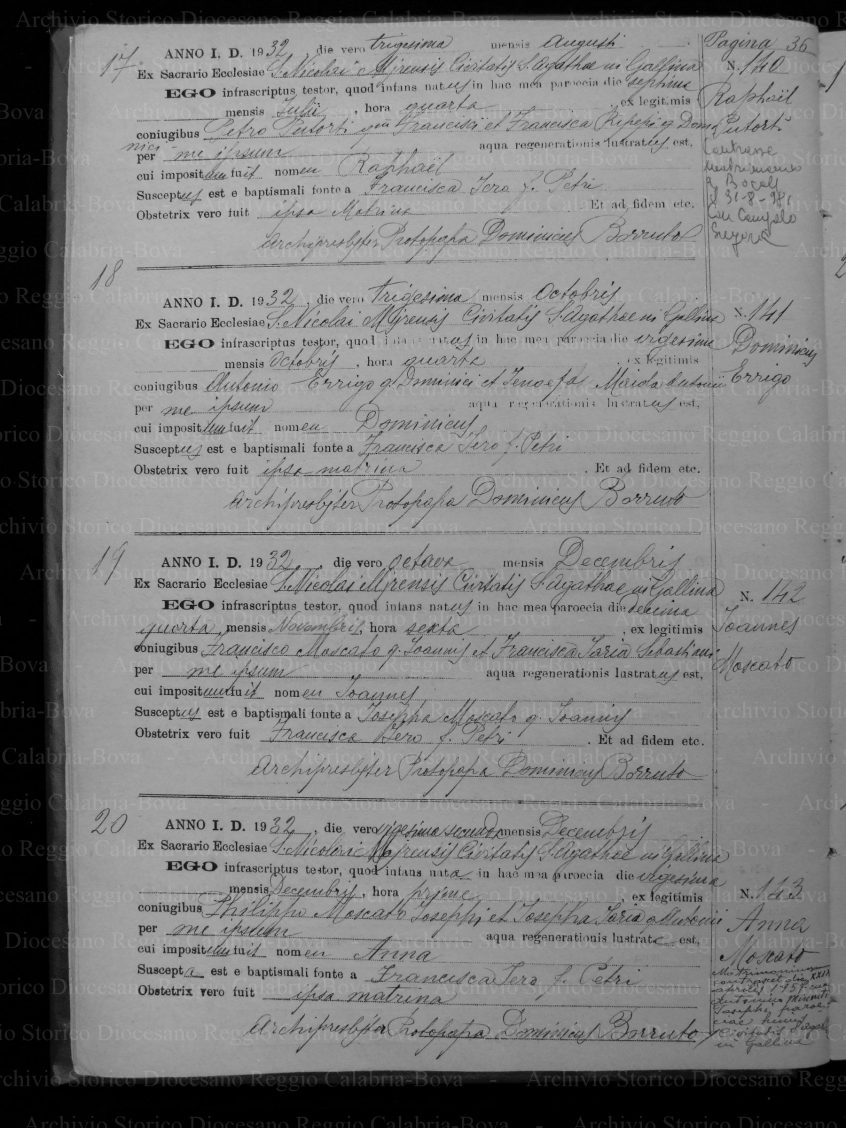 Pagina 36
17
ANNO I. D. 1932, die vero trigesima mensis Augusti
N. 140
Ex Sacrario Ecclesiae S. Nicolai Myrensis Civitatis S. Agathae in Gallina
EGO infrascriptus testor, quod infans natus in hac mea paroecia die septima
mensis Julii, hora quarta, ex legitimis
coniugibus Petro Putortì qm Francisci et Francisca Pepepi q Domi
nici
per me ipsum aqua regenerationis lustratus est,
cui impositum fuit nomen Raphaël
Susceptus est e baptismali fonte a Francisca Iero f. Petri
Obstetrix vero fuit ipsa Matrina Et ad fidem etc.
Archipresbyter Protopapa Dominicus Borruto
Raphaël
Putortì
contrasse
matrimonio
a Bocale
il 31-8-981
con
18
ANNO I. D. 1932, die vero trigesima mensis Octobris
N. 141
Ex Sacrario Ecclesiae S. Nicolai Myrensis Civitatis S. Agathae in Gallina
EGO infrascriptus testor, quod infans natus in hac mea paroecia die vigesima
mensis Octobris, hora quarta, ex legitimis
coniugibus Antonio Errigo q Dominici et Maida Antonii
per me ipsum aqua regenerationis lustratus est,
cui impositum fuit nomen Dominicus
Susceptus est e baptismali fonte a Francisca Iero f. Petri
Obstetrix vero fuit ipsa matrina. Et ad fidem etc.
Archipresbyter Protopapa Dominicus Borruto
Dominicus
Errigo
19
ANNO I. D. 1932, die vero octava mensis Decembris
Ex Sacrario Ecclesiae S. Nicolai Myrensis Civitatis S. Agathae in Gallina
N. 142
EGO infrascriptus testor, quod infans natus in hac mea paroecia die decima
quarta, mensis Novembris, hora sexta, ex legitimis
coniugibus Francisco Moscato q. Ioannis et Francisca Saria Sebastiani
per me ipsum aqua regenerationis lustratus est,
cui impositum fuit nomen Ioannes
Susceptus est e baptismali fonte a Iosepha Moscato q. Ioannis
Obstetrix vero fuit Francisca Iero f. Petri. Et ad fidem etc.
Archipresbyter Protopapa Dominicus Borruto
Ioannes
Moscato
20
ANNO I. D. 1932, die vero vigesima secunda mensis Decembris
Ex Sacrario Ecclesiae S. Nicolai Myrensis Civitatis S. Agathae in Gallina
EGO infrascriptus testor, quod infans nata in hac mea paroecia die vigesima
mensis Decembris, hora prima, ex legitimis
N. 143
coniugibus Philippo Moscato Ioseppi et Iosepha Saria
per me ipsum aqua regenerationis lustrata est,
cui impositum fuit nomen Anna
Suscepta est e baptismali fonte a Francisca Iero f. Petri
Obstetrix vero fuit ipsa matrina
Archipresbyter Protopapa Dominicus Borruto
Anna
Moscato
Matrimonium
contraxit die XXIX
aprilis 1957 cum
Antonino
Iosephi, paroe
ciae huius
Civitatis S. Agath
in Gallina
Archivio Storico Diocesano Reggio Calabria-Bova